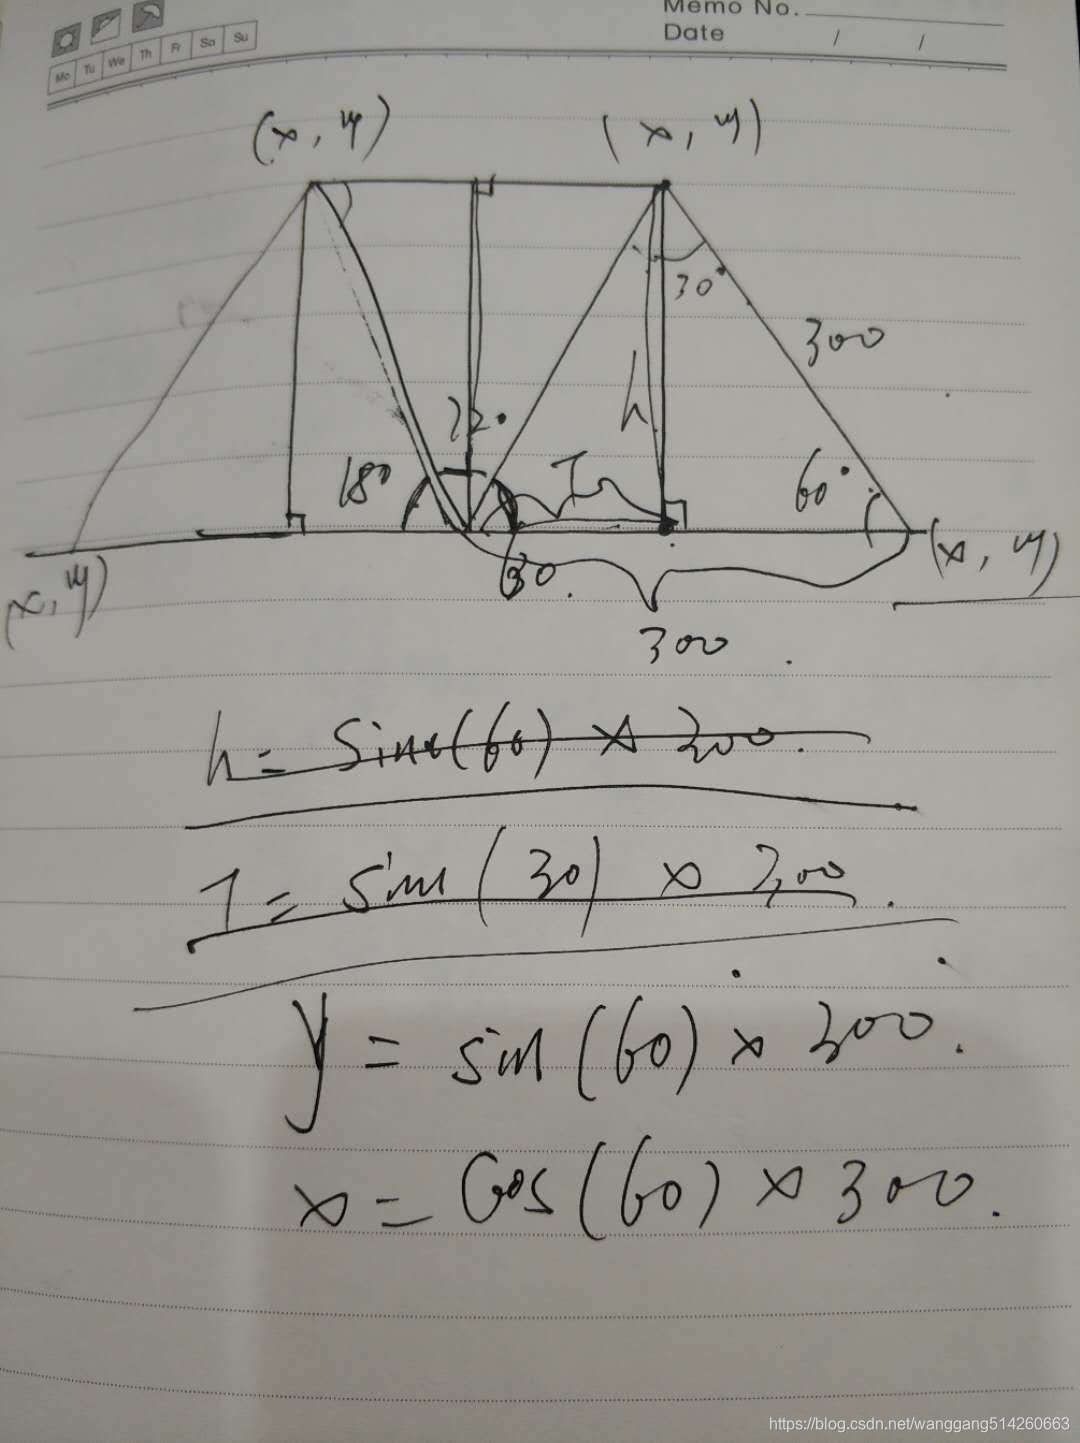 Memo No.
Date / /
Mo Tu We Th Fr Sa Su
(x, y) (x, y)
30°
300
h
180
60°
(x, y)
(x, y)
300
h = sin(60) × 300.
= sin(30) × 300.
y = sin(60) × 300.
x = cos(60) × 300.
https://blog.csdn.net/wanggang514260663